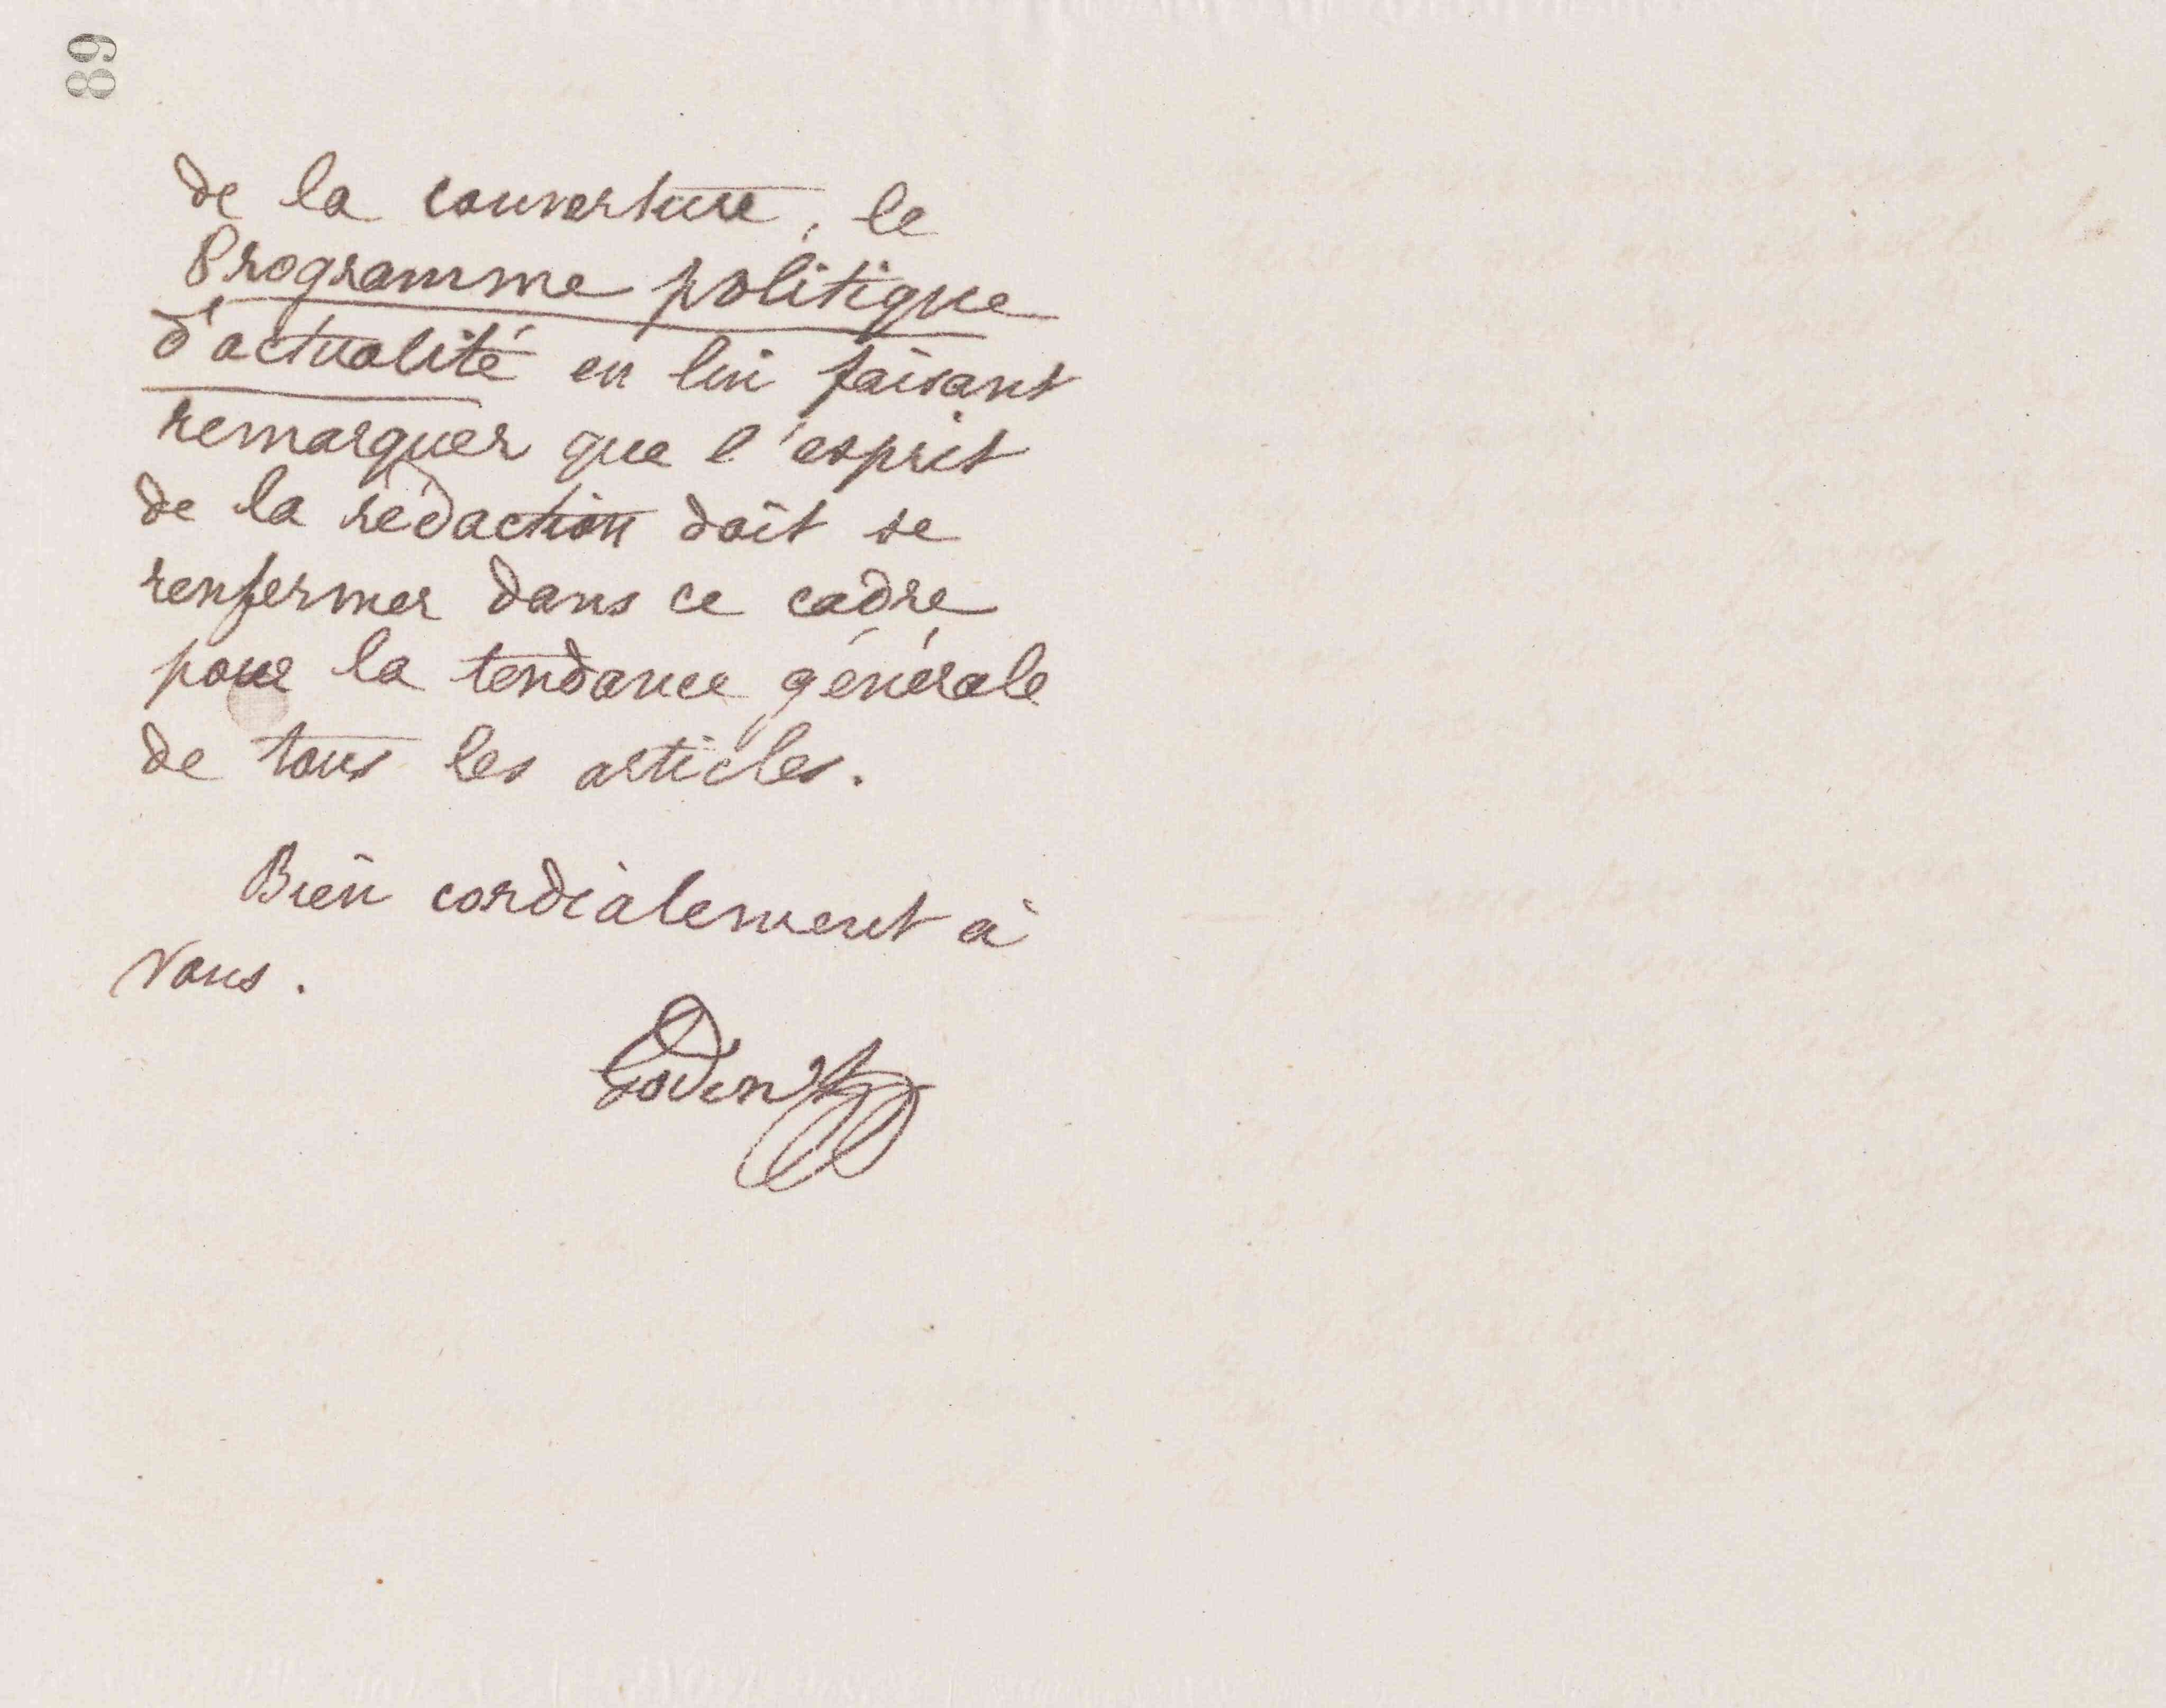 89
de la couverture, le
Programme politique
d'actualité en lui faisant
remarquer que l'esprit
de la rédaction doit se
renfermer dans ce cadre
pour la tendance générale
de tous les articles.
Bien cordialement à
vous.
Godin